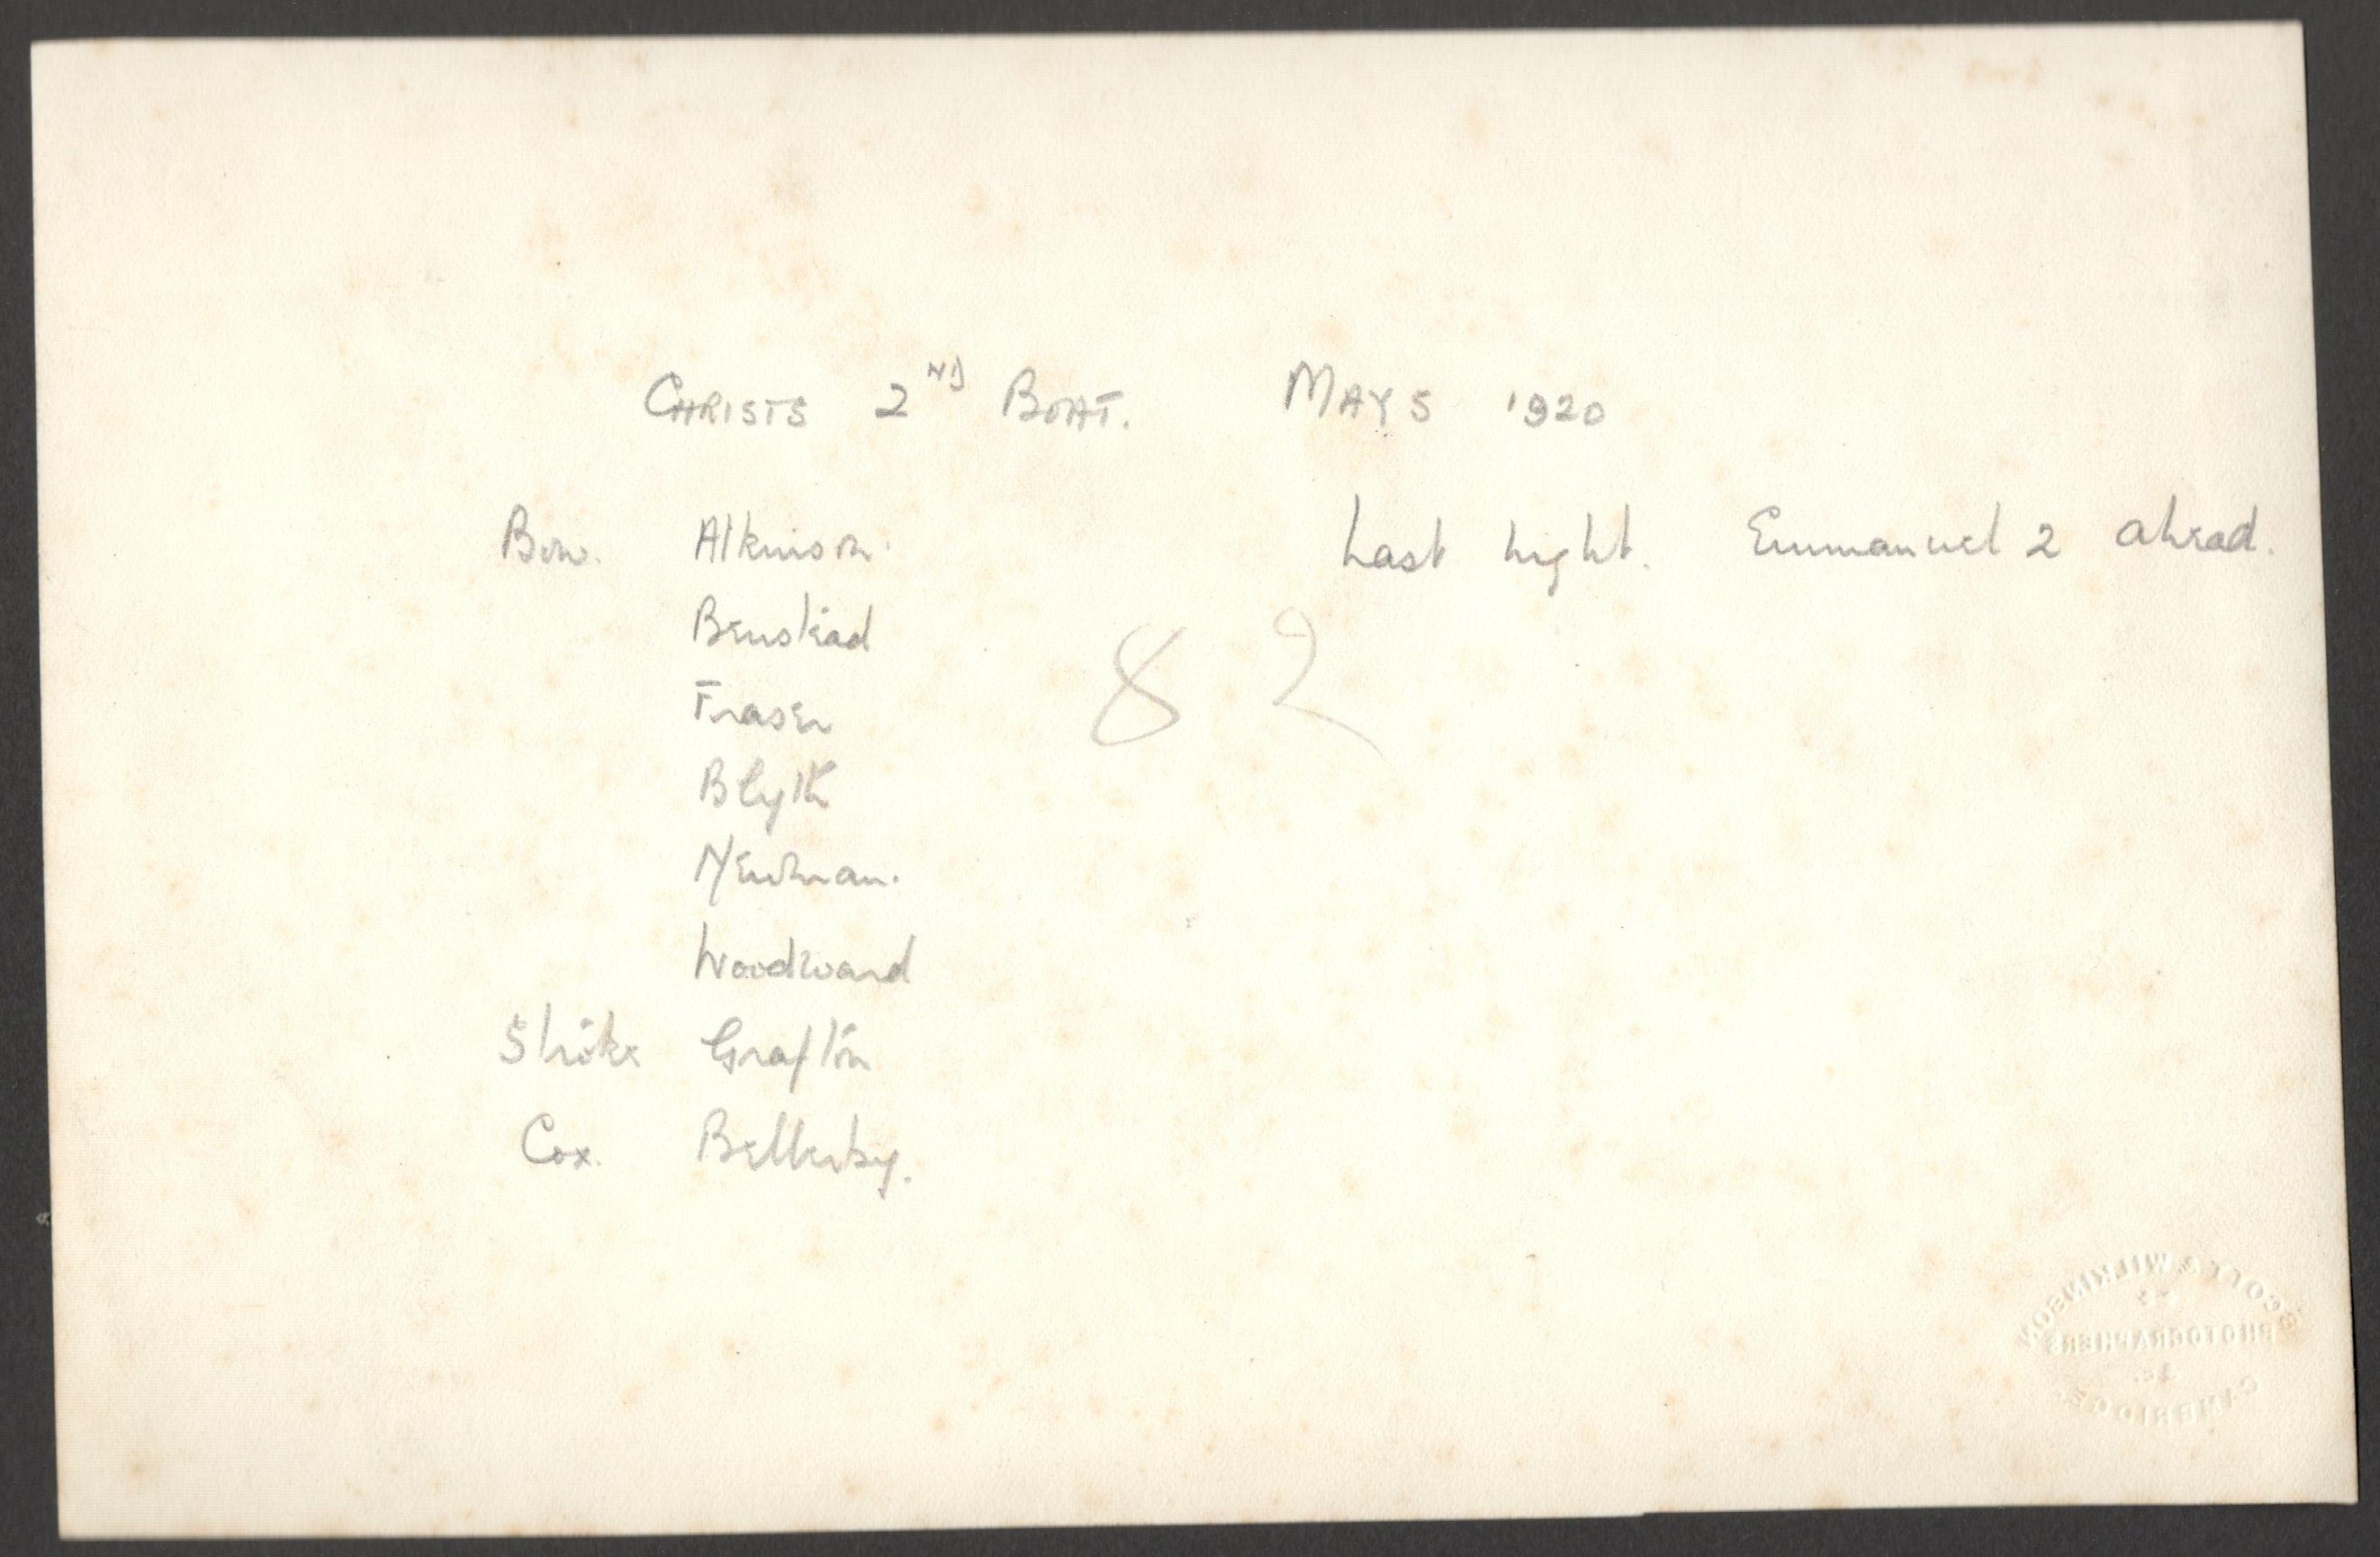 CHRISTS 2ND BOAT. MAYS 1920
Bow. Atkinson. Last night. Emmanuel 2 ahead.
Benstead
82
Fraser
Blyth
Newman.
Woodward
Stroke Grafton
Cox. Bellerby.
SCOTT & WILKINSON
PHOTOGRAPHERS
&c.
CAMBRIDGE.